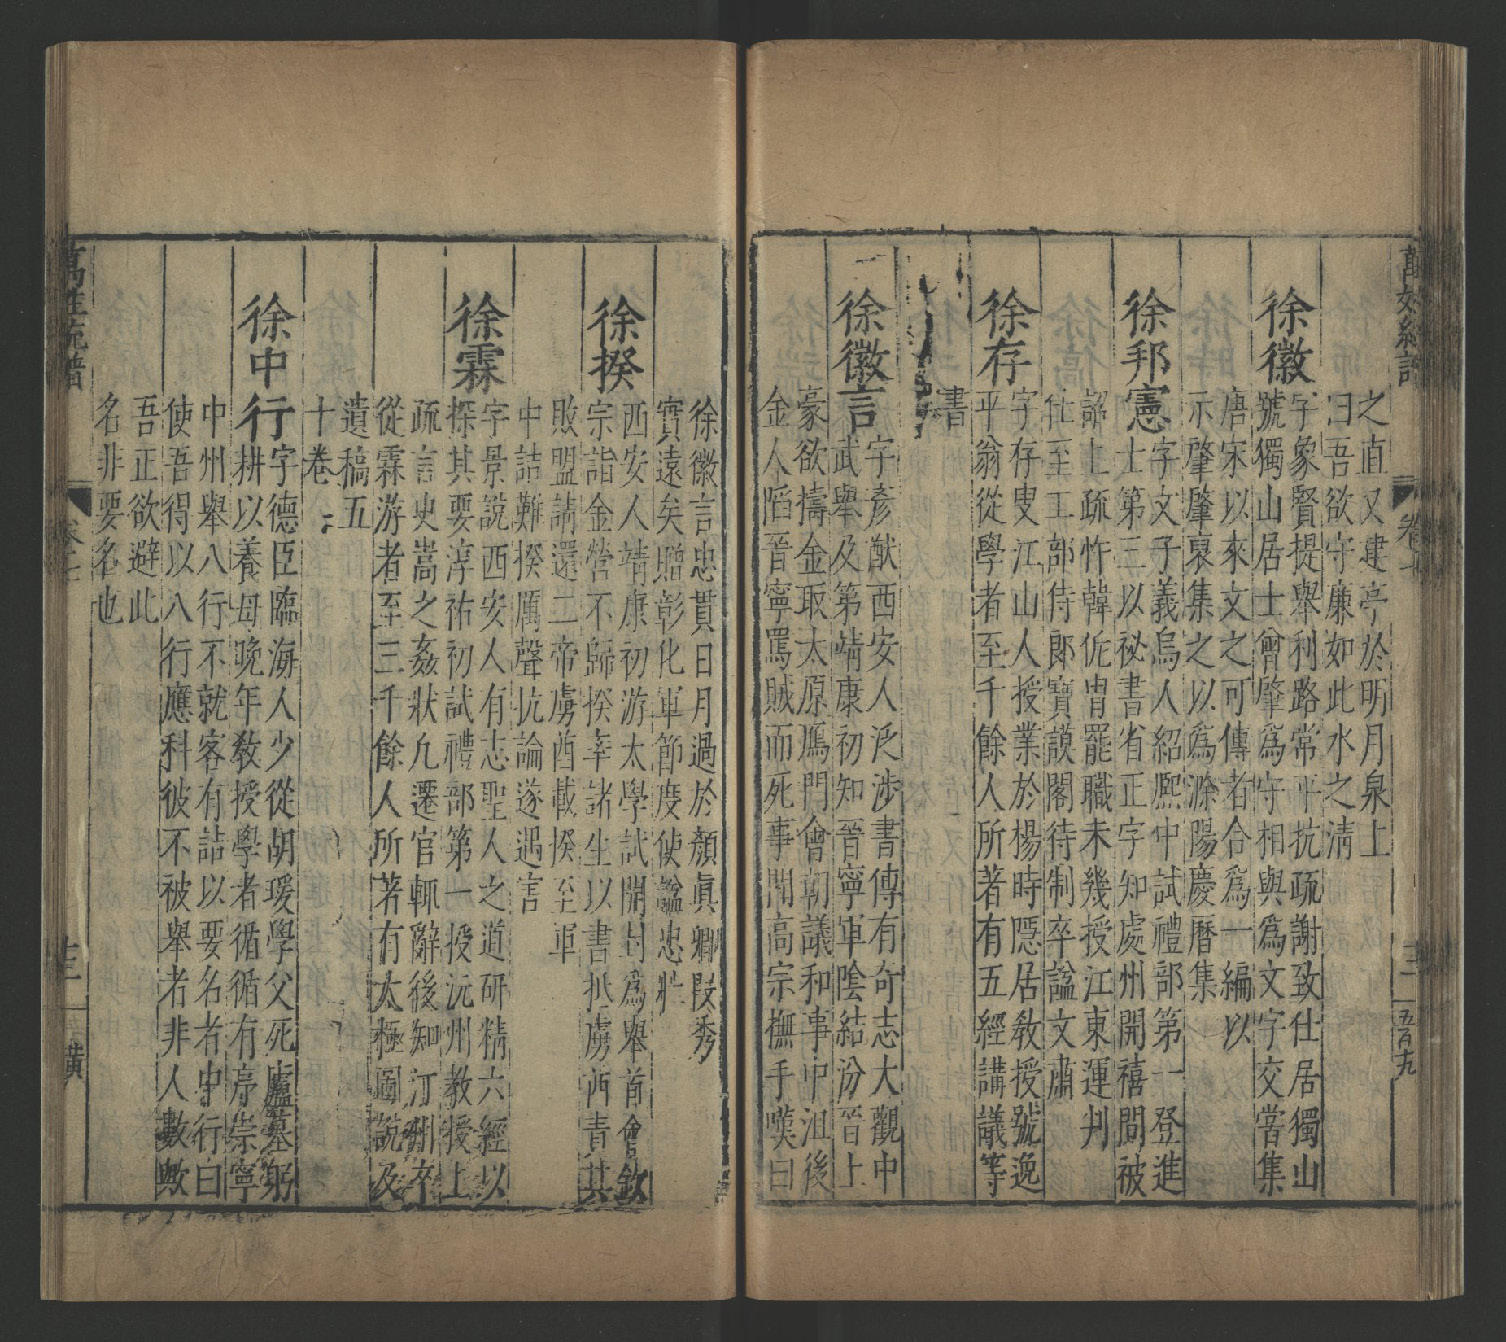 之直又建亭於明月泉上
曰吾欲守廉如此水之清
徐徽字象賢提舉利路常平抗疏謝致仕居獨山
號獨山居士曾肇爲守相與爲文字交嘗集
唐宋以來文之可傳者合爲一編以
示肇肇裒集之以爲滁陽慶曆集
徐邦憲字文子義烏人紹熙中試禮部第一登進
士第三以祕書省正字知處州開禧間被
詔上疏忤韓侂冑罷職未幾授江東運判
仕至工部侍郎寶謨閣待制卒諡文肅
徐存字存叟江山人授業於楊時隱居教授號逸
平翁從學者至千餘人所著有五經講議等
書
徐徽言字彥猷西安人泛涉書傳有奇志大觀中
武舉及第靖康初知晉寧軍陰結汾晉土
豪欲擣金取太原鴈門會朝議和事中沮後
金人陷晉寧罵賊而死事聞高宗撫手嘆曰
徐徽言忠貫日月過於顏真卿段秀
實遠矣贈彰化軍節度使諡忠壯
徐揆西安人靖康初游太學試開封爲舉首會欽
宗詣金營不歸揆率諸生以書抵虜酋責其
敗盟請還二帝虜酋載揆至軍
中詰難揆厲聲抗論遂遇害
徐霖字景說西安人有志聖人之道研精六經以
探其要淳祐初試禮部第一授沅州教授上
疏言史嵩之姦狀凡遷官輒辭後知汀州卒
從霖游者至三千餘人所著有太極圖說及
遺稿五
十卷
徐中行字德臣臨海人少從胡瑗學父死廬墓躬
耕以養母晚年敎授學者循循有序崇寧
中州舉八行不就客有詰以要名者中行曰
使吾得以八行應科彼不被舉者非人數歟
吾正欲避此
名非要名也
萬姓統譜 卷七